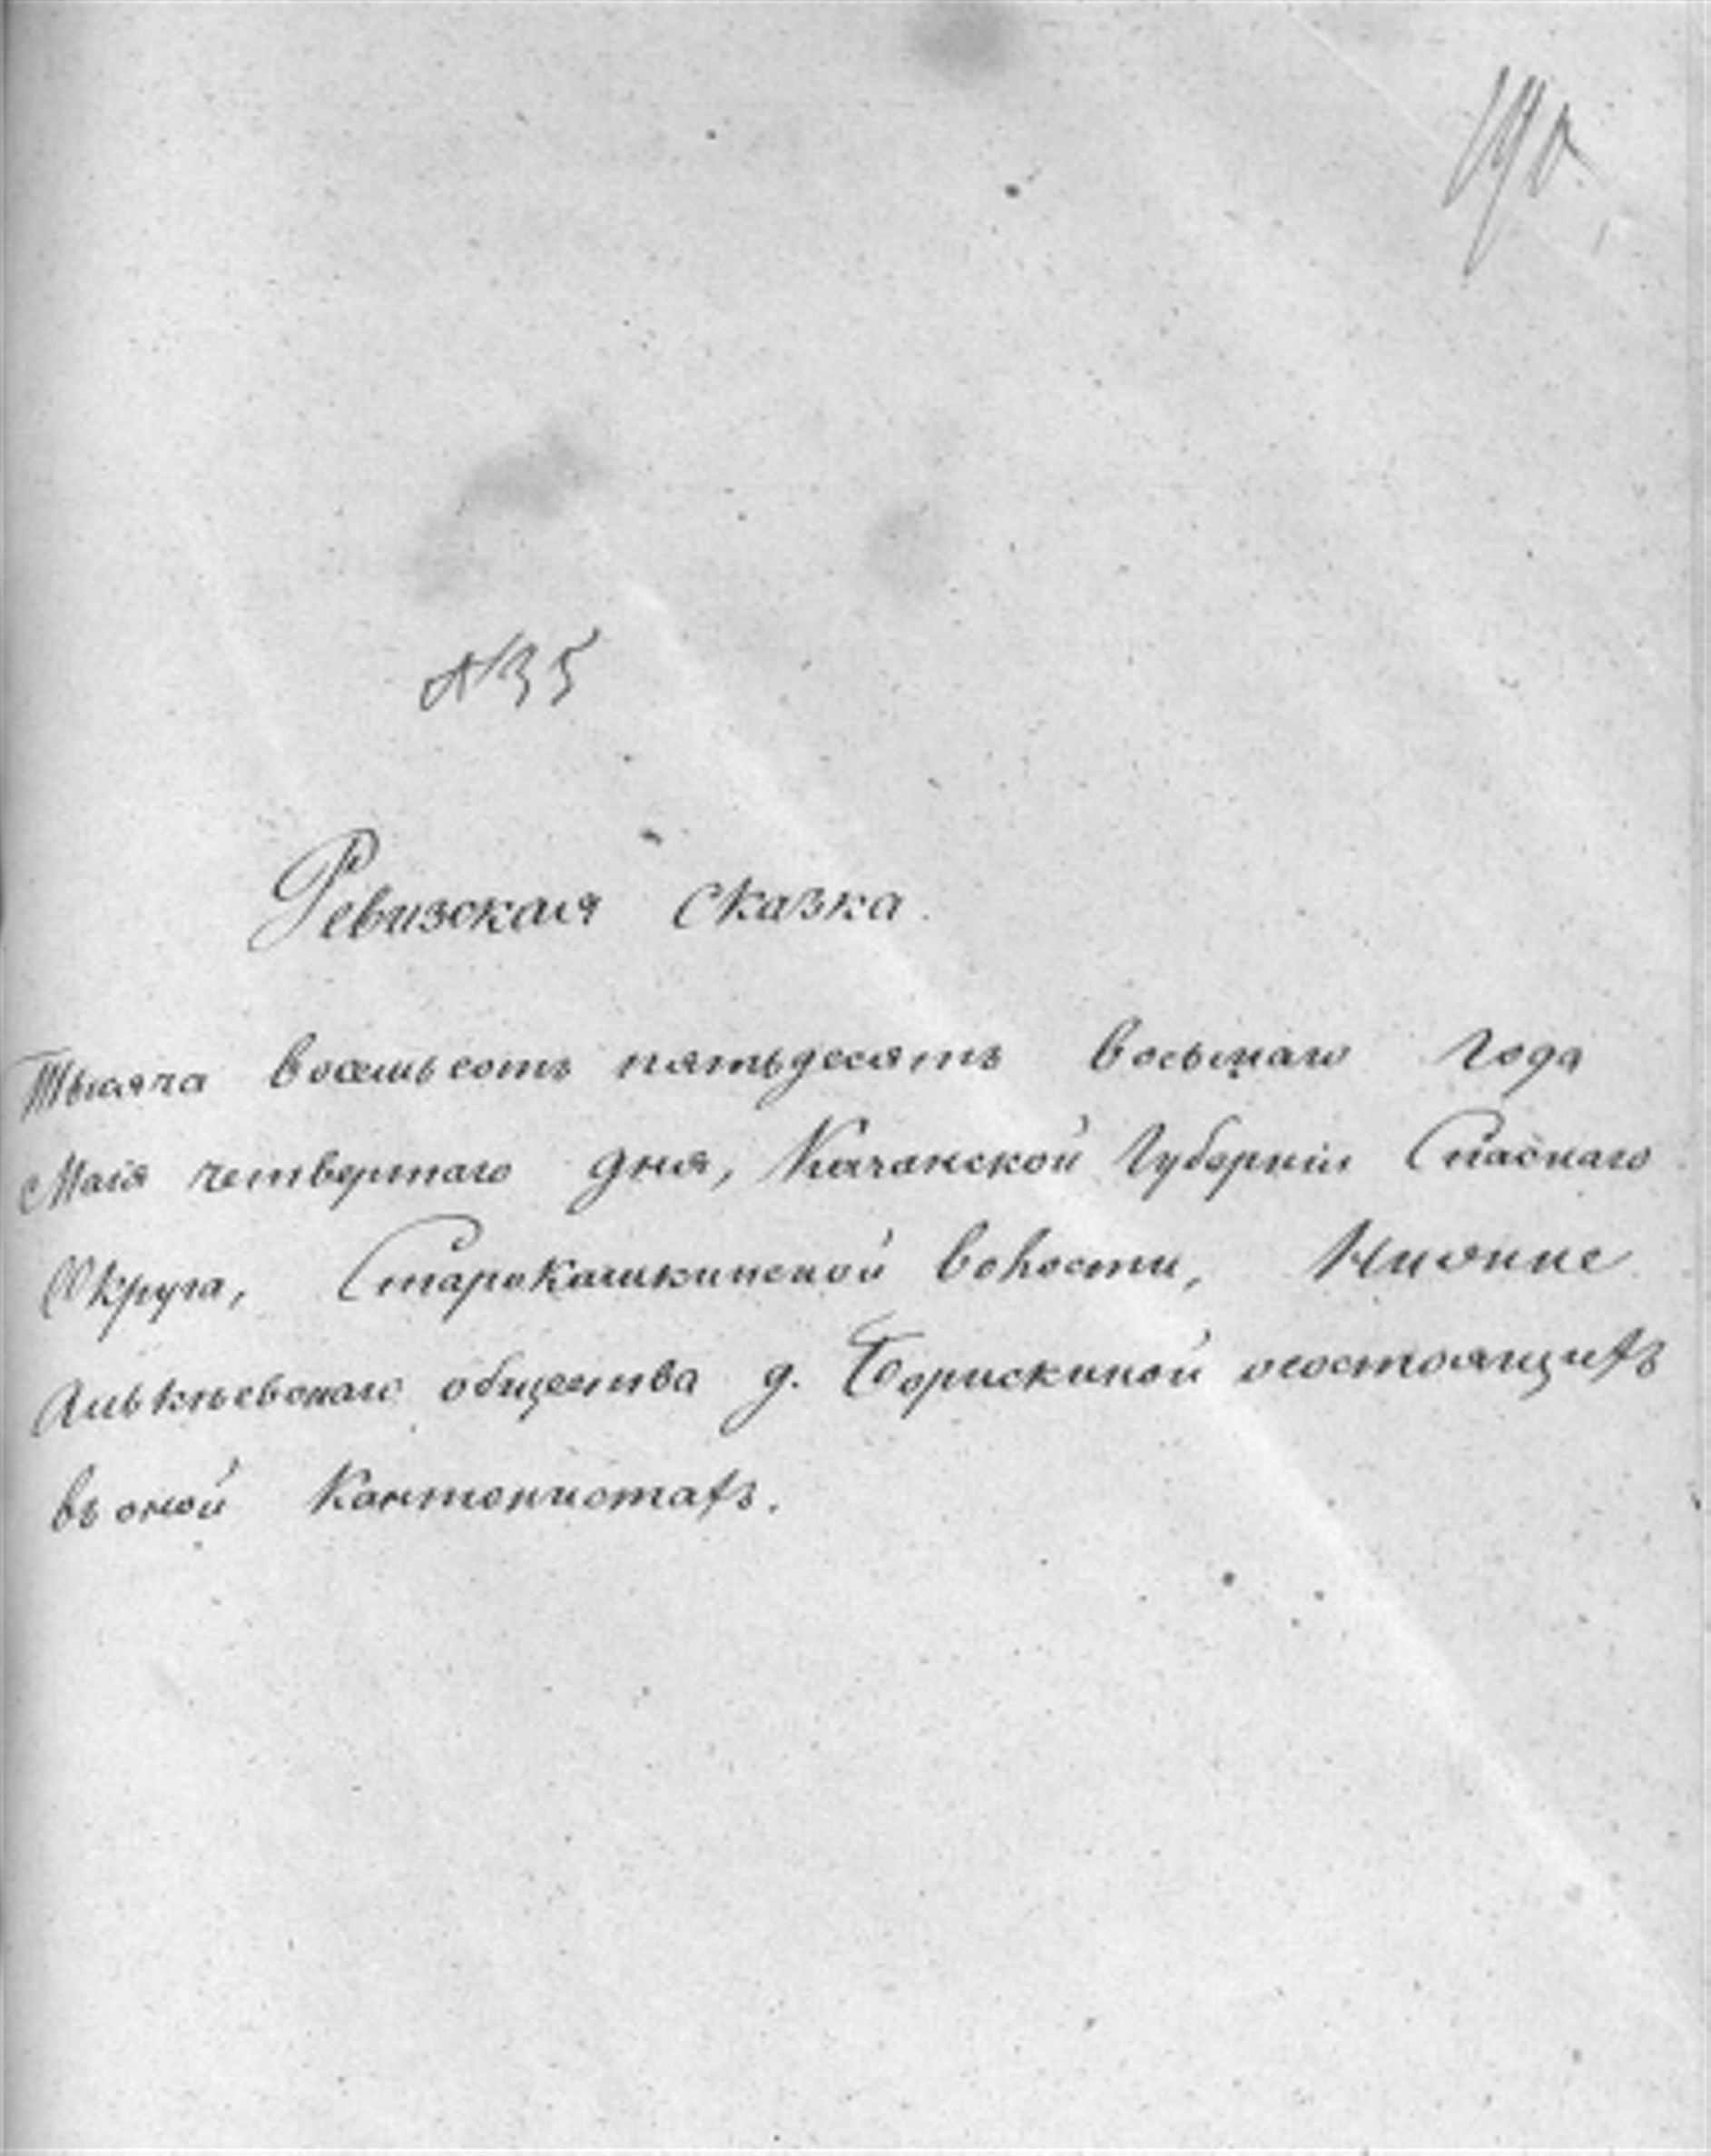 190
№ 35
Ревизская сказка.
Тысяча восемьсотъ пятьдесятъ восьмаго года
Маія четвертаго дня, Казанской Губерніи Спаскаго
Округа, Старокамкинской волости, Нижне
Алькѣевскаго общества д. Борискиной о состоящихъ
въ оной Кантонистахъ.